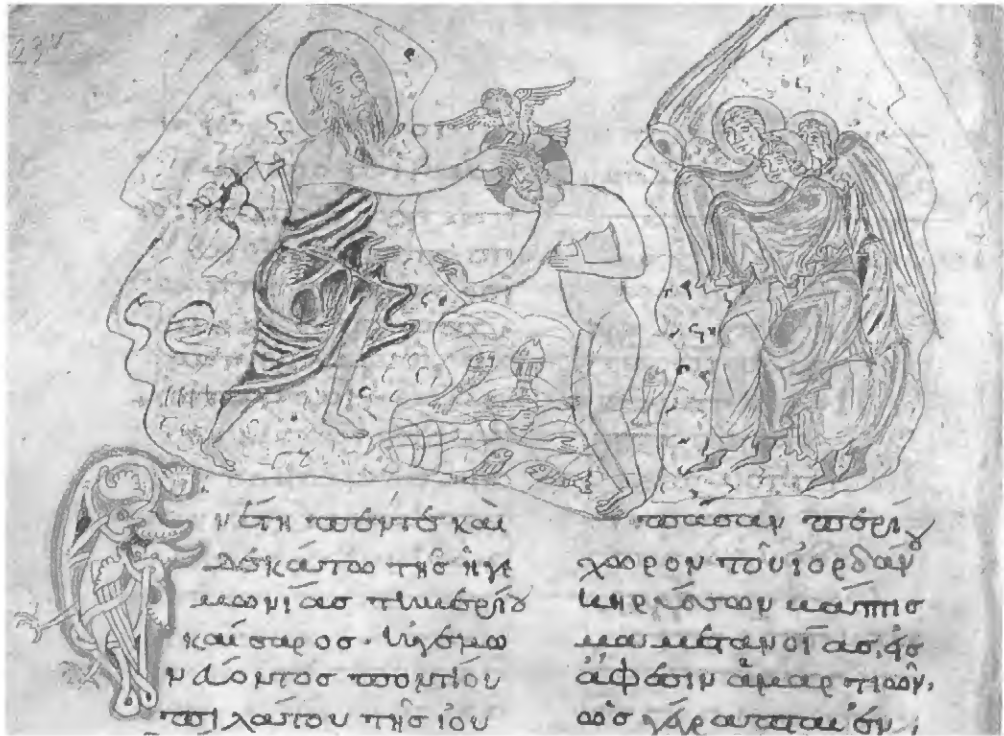 Εν ἔτη πέντε καὶ
δεκάτω τῆς ἡγε
μωνίας τιβερίου
καίσαρος· ἡγεμω
νέοντος ποντίου
πιλάτου τῆς ἰου
πᾶσαν περί
χορον τοῦ ἰορδάνου
κηρύσσων βάπτισ
μα μετανοίας, εἰς
ἄφεσιν ἁμαρτιῶν,
ὡς γέγραπται ἐν